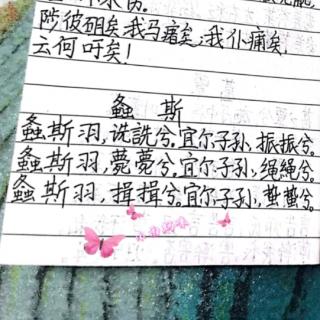 陟彼砠矣,我马瘏矣,我仆痡矣,
云何吁矣!
螽 斯
螽斯羽,诜诜兮。宜尔子孙,振振兮。
螽斯羽,薨薨兮。宜尔子孙,绳绳兮。
螽斯羽,揖揖兮。宜尔子孙,蛰蛰兮。